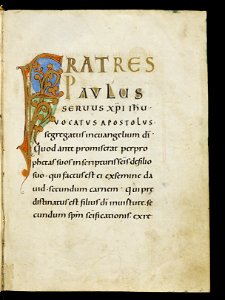 FRATRES
PAVLUS
SERUUS XPI IHU
VOCATUS APOSTOLUS
segregatus in euangelium di
Quod ante promiserat per pro
phetas suos in scripturis scis de filio
suo · qui factus est ei ex semine da
uid · secundum carnem · qui pre
destinatus est filius di in uirtute · se
cundum spm scificationis ex re